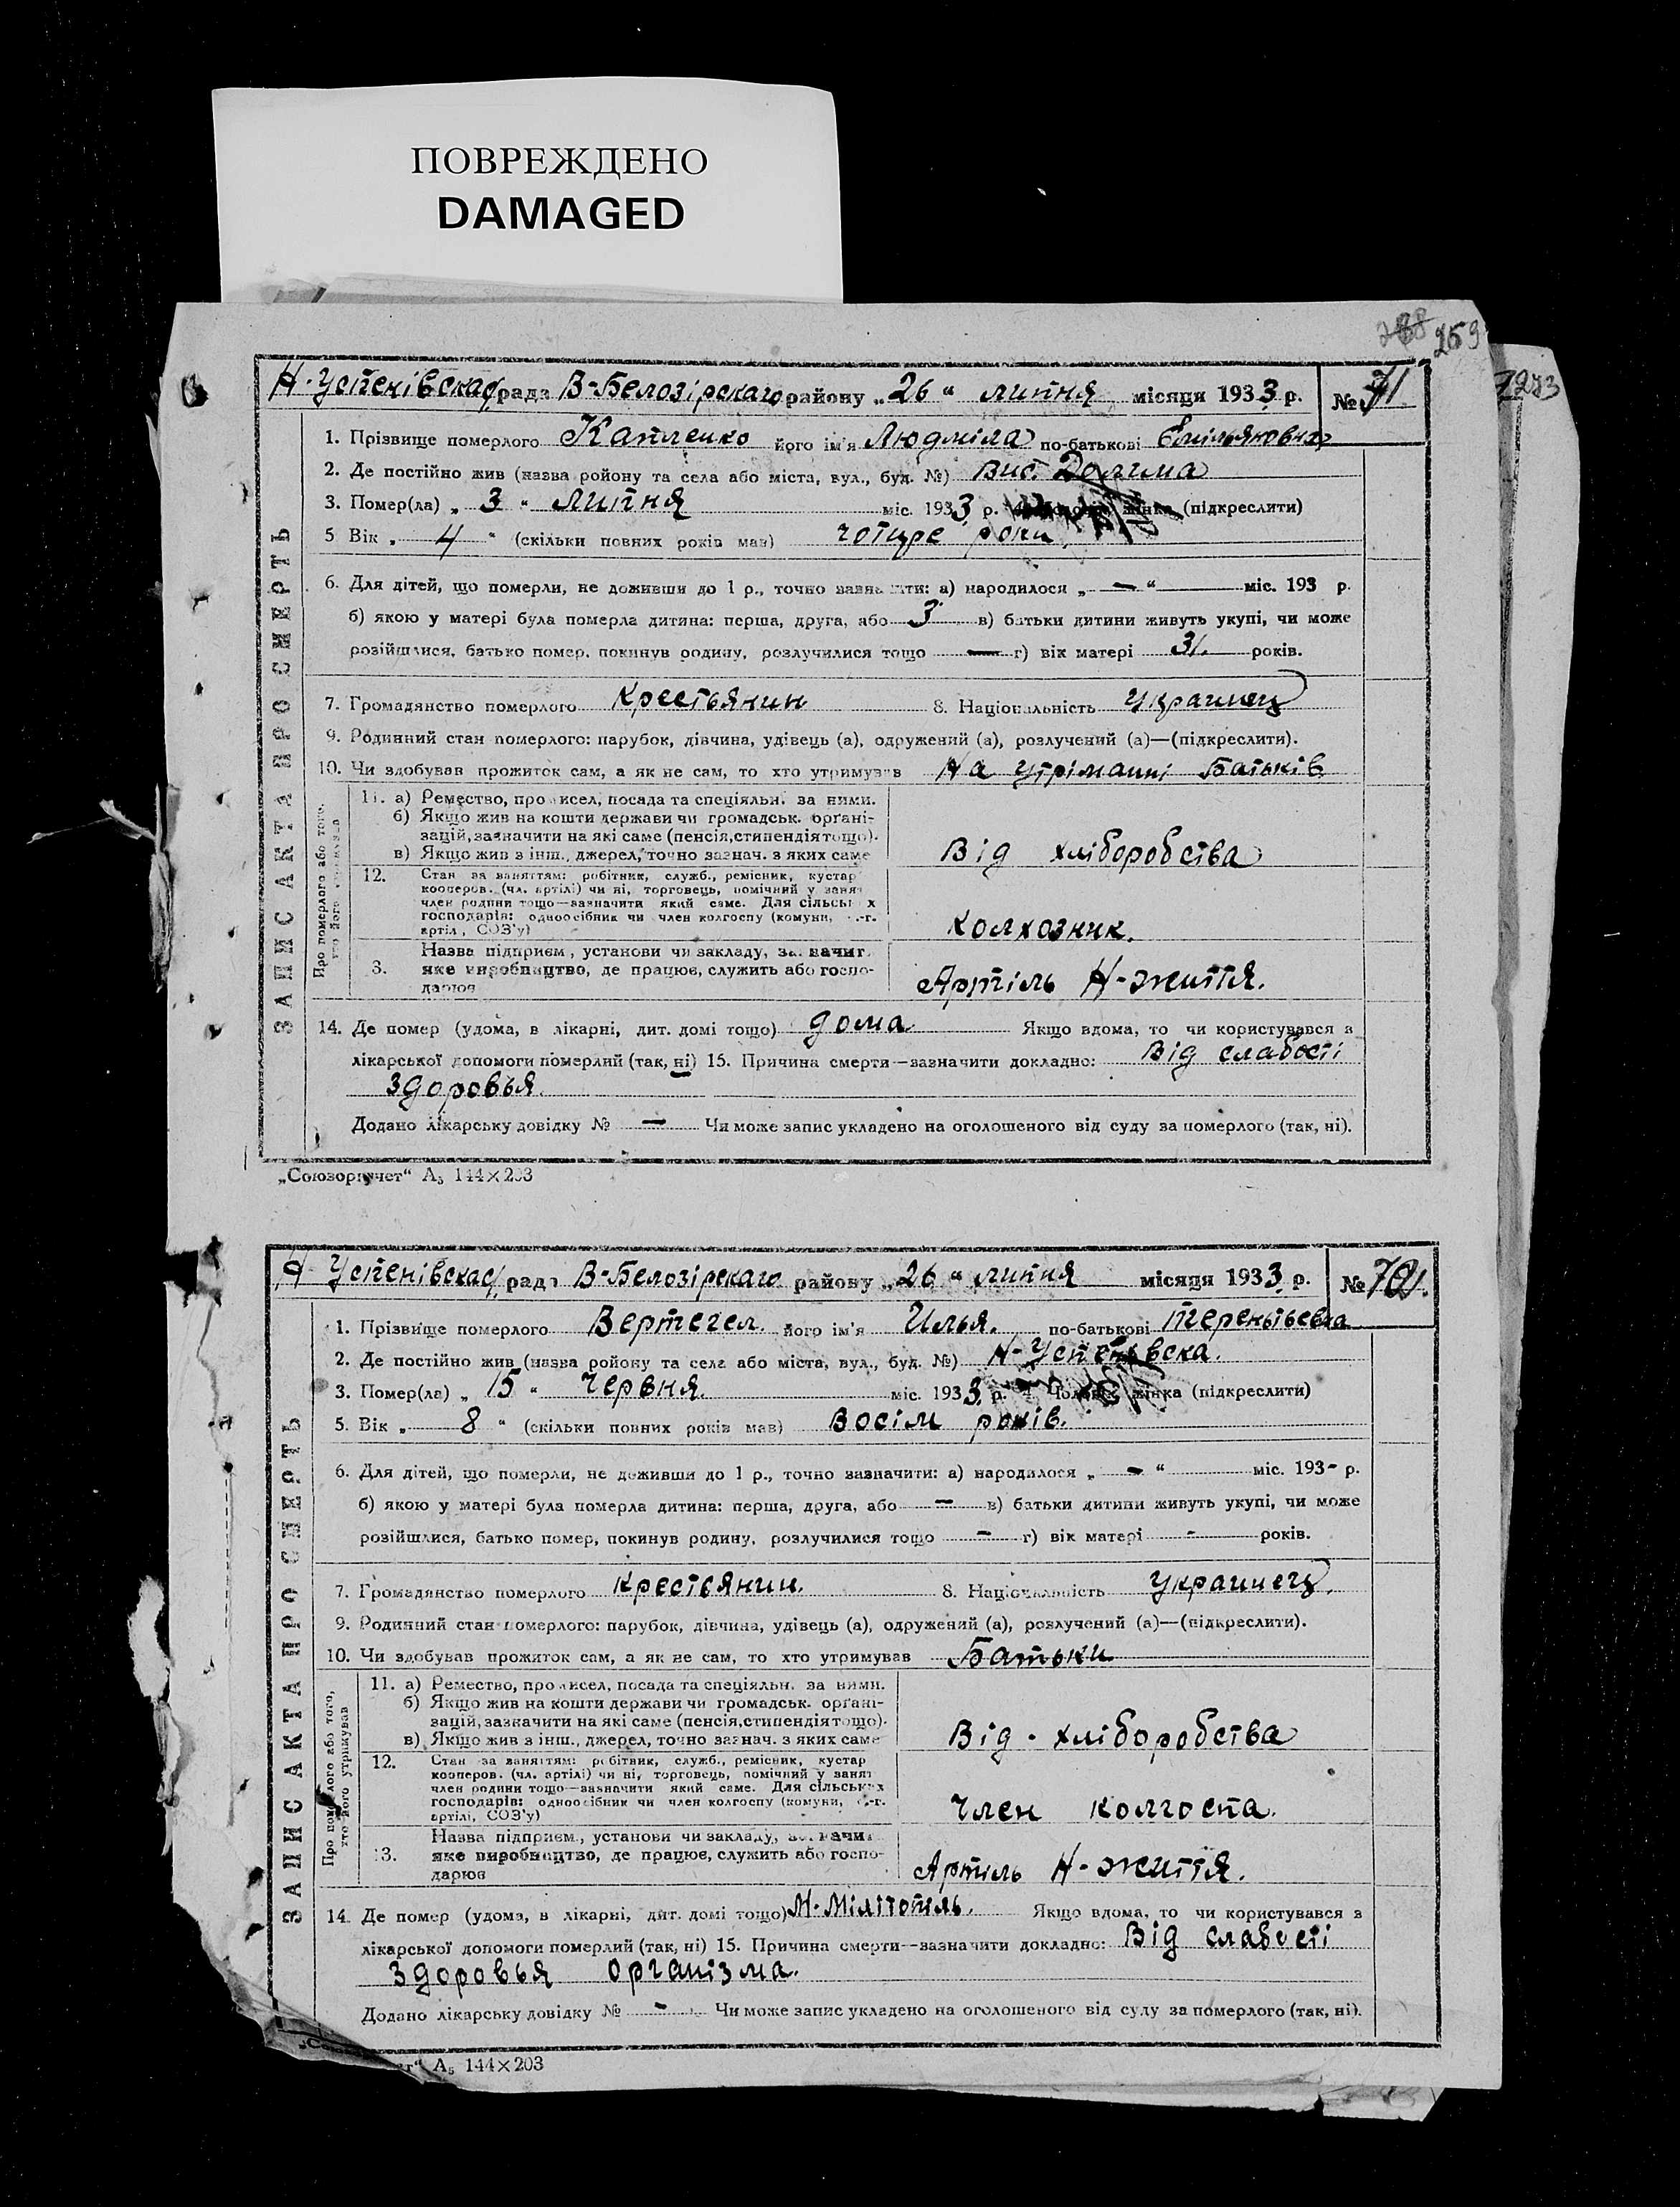 ПОВРЕЖДЕНО
DAMAGED
259
273
Н-Успенівская рада В-Белозірскаго району „26“ липня місяця 1933 р. № 71
1. Прізвище померлого Капленко його ім'я Людміла по-батькові Емільяновна
2. Де постійно жив (назва ройону та села або міста, вул., буд. №) Вис. Долина
3. Помер(ла) „3“ липня міс. 1933 р. жінка (підкреслити)
5 Вік „4“ (скільки повних років мав) чотире роки.
6. Для дітей, що померли, не доживши до 1 р., точно зазначити: а) народилося „—“ міс. 193 р.
б) якою у матері була померла дитина: перша, друга, або 3 в) батьки дитини живуть укупі, чи може
розійшлися, батько помер, покинув родину, розлучилися тощо — г) вік матері 31. років.
7. Громадянство померлого крестьянин 8. Національність Украинец
9. Родинний стан померлого: парубок, дівчина, удівець (а), одружений (а), розлучений (а)—(підкреслити).
10. Чи здобував прожиток сам, а як не сам, то хто утримував На утріманні Батьків
ЗАПИС АКТА ПРО СМЕРТЬ
Про померлого або того, хто його утримував
11. а) Ремество, промисел, посада та спеціяльн. за ними.
б) Якщо жив на кошти держави чи громадськ. орґані-
зацій, зазначити на які саме (пенсія, стипендія тощо).
в) Якщо жив з інш., джерел, точно зазнач. з яких саме
Від хліборобства
12. Стан за заняттям: робітник, служб., ремісник, кустар
кооперов. (чл. артілі) чи ні, торговець, помічний у занят
член родини тощо—зазначити який саме. Для сільських
господарів: одноосібник чи член колгоспу (комуни, с.-г.
артіл., СОЗ'у)
колхозник.
3. Назва підприєм., установи чи закладу, зазначит.
яке виробництво, де працює, служить або госпо-
дарює
Артіль Н-життя.
14. Де помер (удома, в лікарні, дит. домі тощо) дома Якщо вдома, то чи користувався з
лікарської допомоги померлий (так, ні) 15. Причина смерти—зазначити докладно: Від слабості
здоровья.
Додано лікарську довідку № — Чи може запис укладено на оголошеного від суду за померлого (так, ні).
„Союзоргучет“ А₅ 144×203
Н Успенівская рада В-Белозірскаго району „26“ липня місяця 1933 р. № 72.
1. Прізвище померлого Вертегел. його ім'я Илья. по-батькові Терентьевча
2. Де постійно жив (назва ройону та села або міста, вул., буд. №) Н-Успенівска.
3. Помер(ла) „15“ Червня. міс. 1933 р. 4 жінка (підкреслити)
5. Вік „8“ (скільки повних років мав) Восім років.
6. Для дітей, що померли, не доживши до 1 р., точно зазначити: а) народилося „—“ міс. 193- р.
б) якою у матері була померла дитина: перша, друга, або — в) батьки дитини живуть укупі, чи може
розійшлися, батько помер, покинув родину, розлучилися тощо - г) вік матері - років.
7. Громадянство померлого крестьянин. 8. Національність Украинец.
9. Родинний стан померлого: парубок, дівчина, удівець (а), одружений (а), розлучений (а)—(підкреслити).
10. Чи здобував прожиток сам, а як не сам, то хто утримував Батьки
ЗАПИС АКТА ПРО СМЕРТЬ
Про померлого або того, хто його утримував
11. а) Ремество, промисел, посада та спеціяльн. за ними.
б) Якщо жив на кошти держави чи громадськ. орґані-
зацій, зазначити на які саме (пенсія, стипендія тощо).
в) Якщо жив з інш., джерел, точно зазнач. з яких саме
Від - хліборобства
12. Стан за заняттям: робітник, служб., ремісник, кустар
кооперов. (чл. артілі) чи ні, торговець, помічний у занят
член родини тощо—зазначити який саме. Для сільських
господарів: одноосібник чи член колгоспу (комуни, с.-г.
артілі, СОЗ'у)
Член колгоспа.
13. Назва підприєм., установи чи закладу, зазначит
яке виробництво, де працює, служить або госпо-
дарює
Артіль Н-життя.
14. Де помер (удома, в лікарні, дит. домі тощо) М-Мілітопіль. Якщо вдома, то чи користувався з
лікарської допомоги померлий (так, ні) 15. Причина смерти—зазначити докладно: Від слабості
здоровья організма.
Додано лікарську довідку № - Чи може запис укладено на оголошеного від суду за померлого (так, ні).
А₅ 144×203